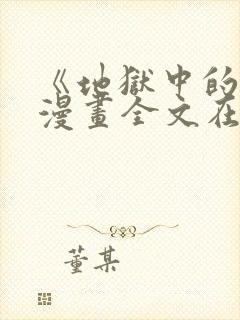 《地獄中的
漫畫全文在
董某